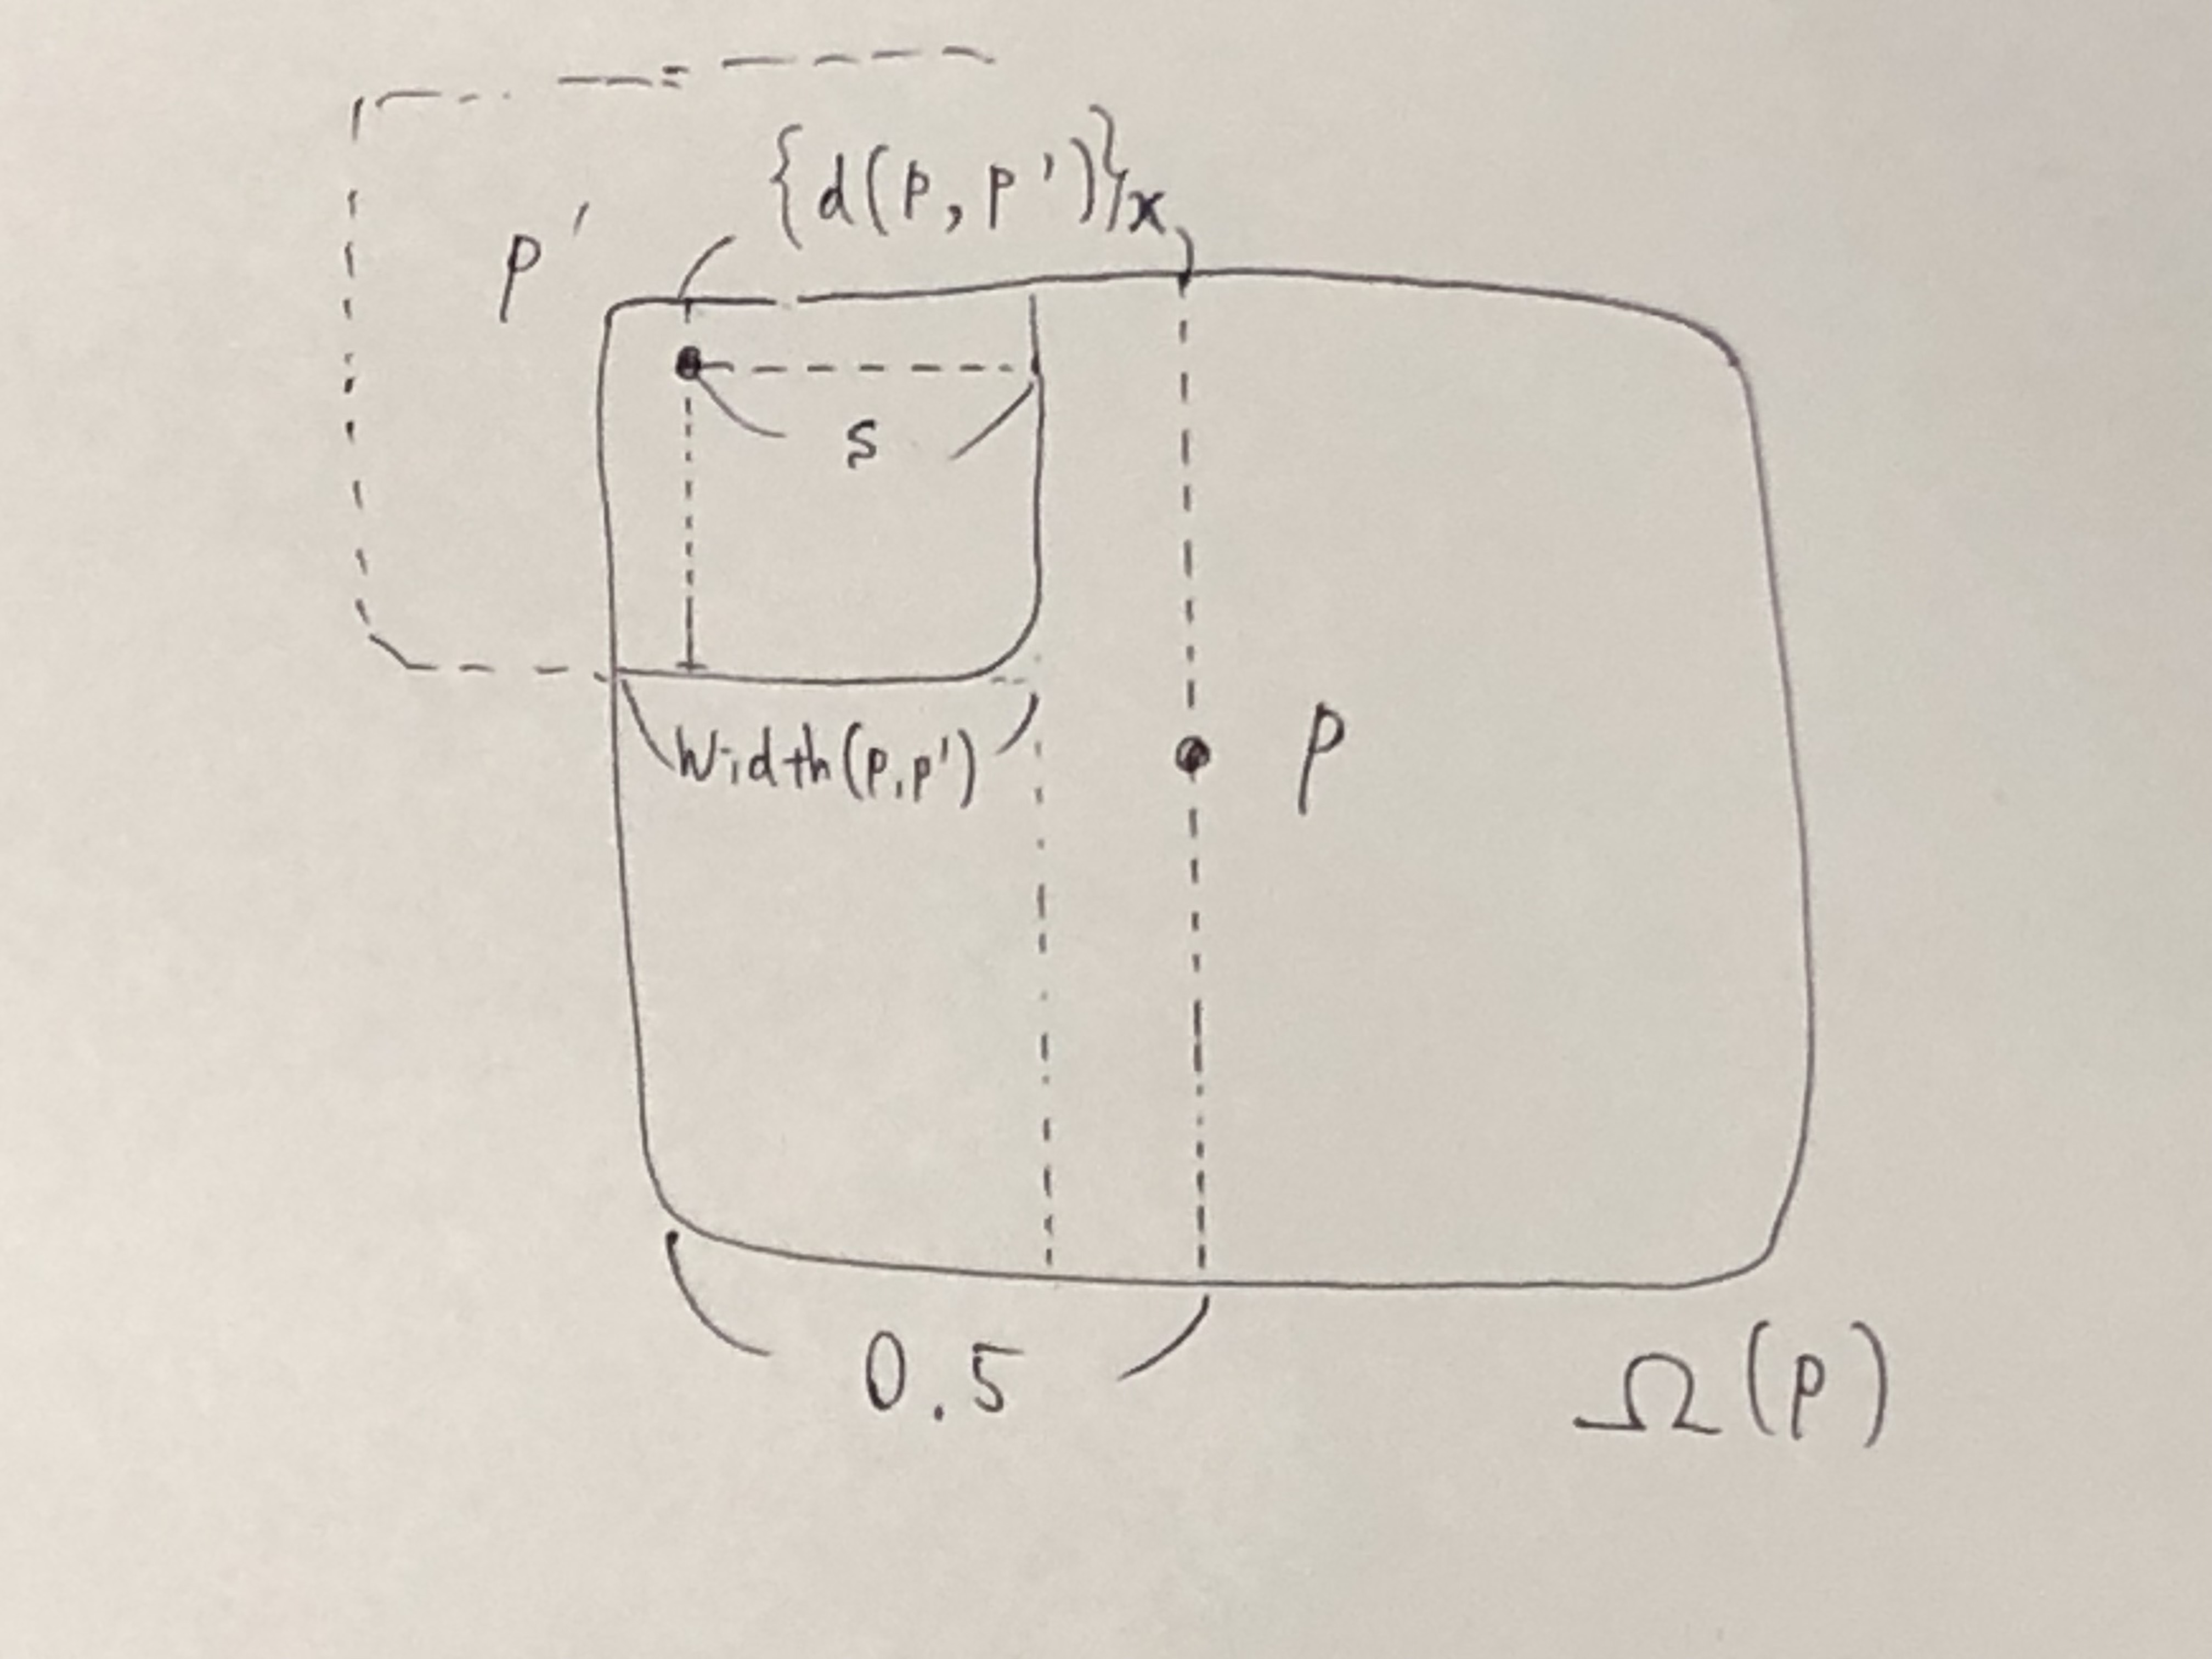 {d(p, p')}x
p'
s
Width(p,p')
p
0.5
Ω(p)